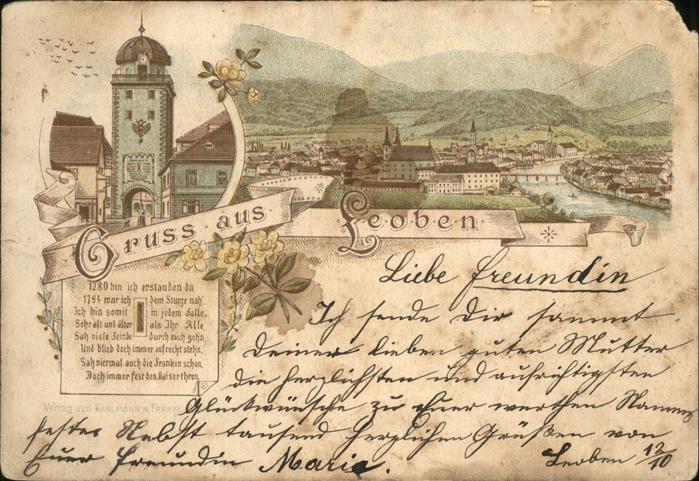 Gruss aus Leoben
1280 bin ich erstanden da
1794 war ich dem Sturze nah'
Ich bin somit in jedem Falle,
Sehr alt und älter als Ihr Alle,
Sah viele Feinde durch mich gehn
Und blieb doch immer aufrecht stehn,
Sah viermal auch die Franken schon,
Doch immer fest den Kaiserthron.
Verlag von
Liebe Freundin
Ich sende Dir sammt
Deiner lieben guten Mutter
die herzlichsten und aufrichtigsten
Glückwünsche zu Euer werthen Namens
festes Nebst tausend herzlichen Grüßen von
Euer Freundin Marie.
Leoben 12/10